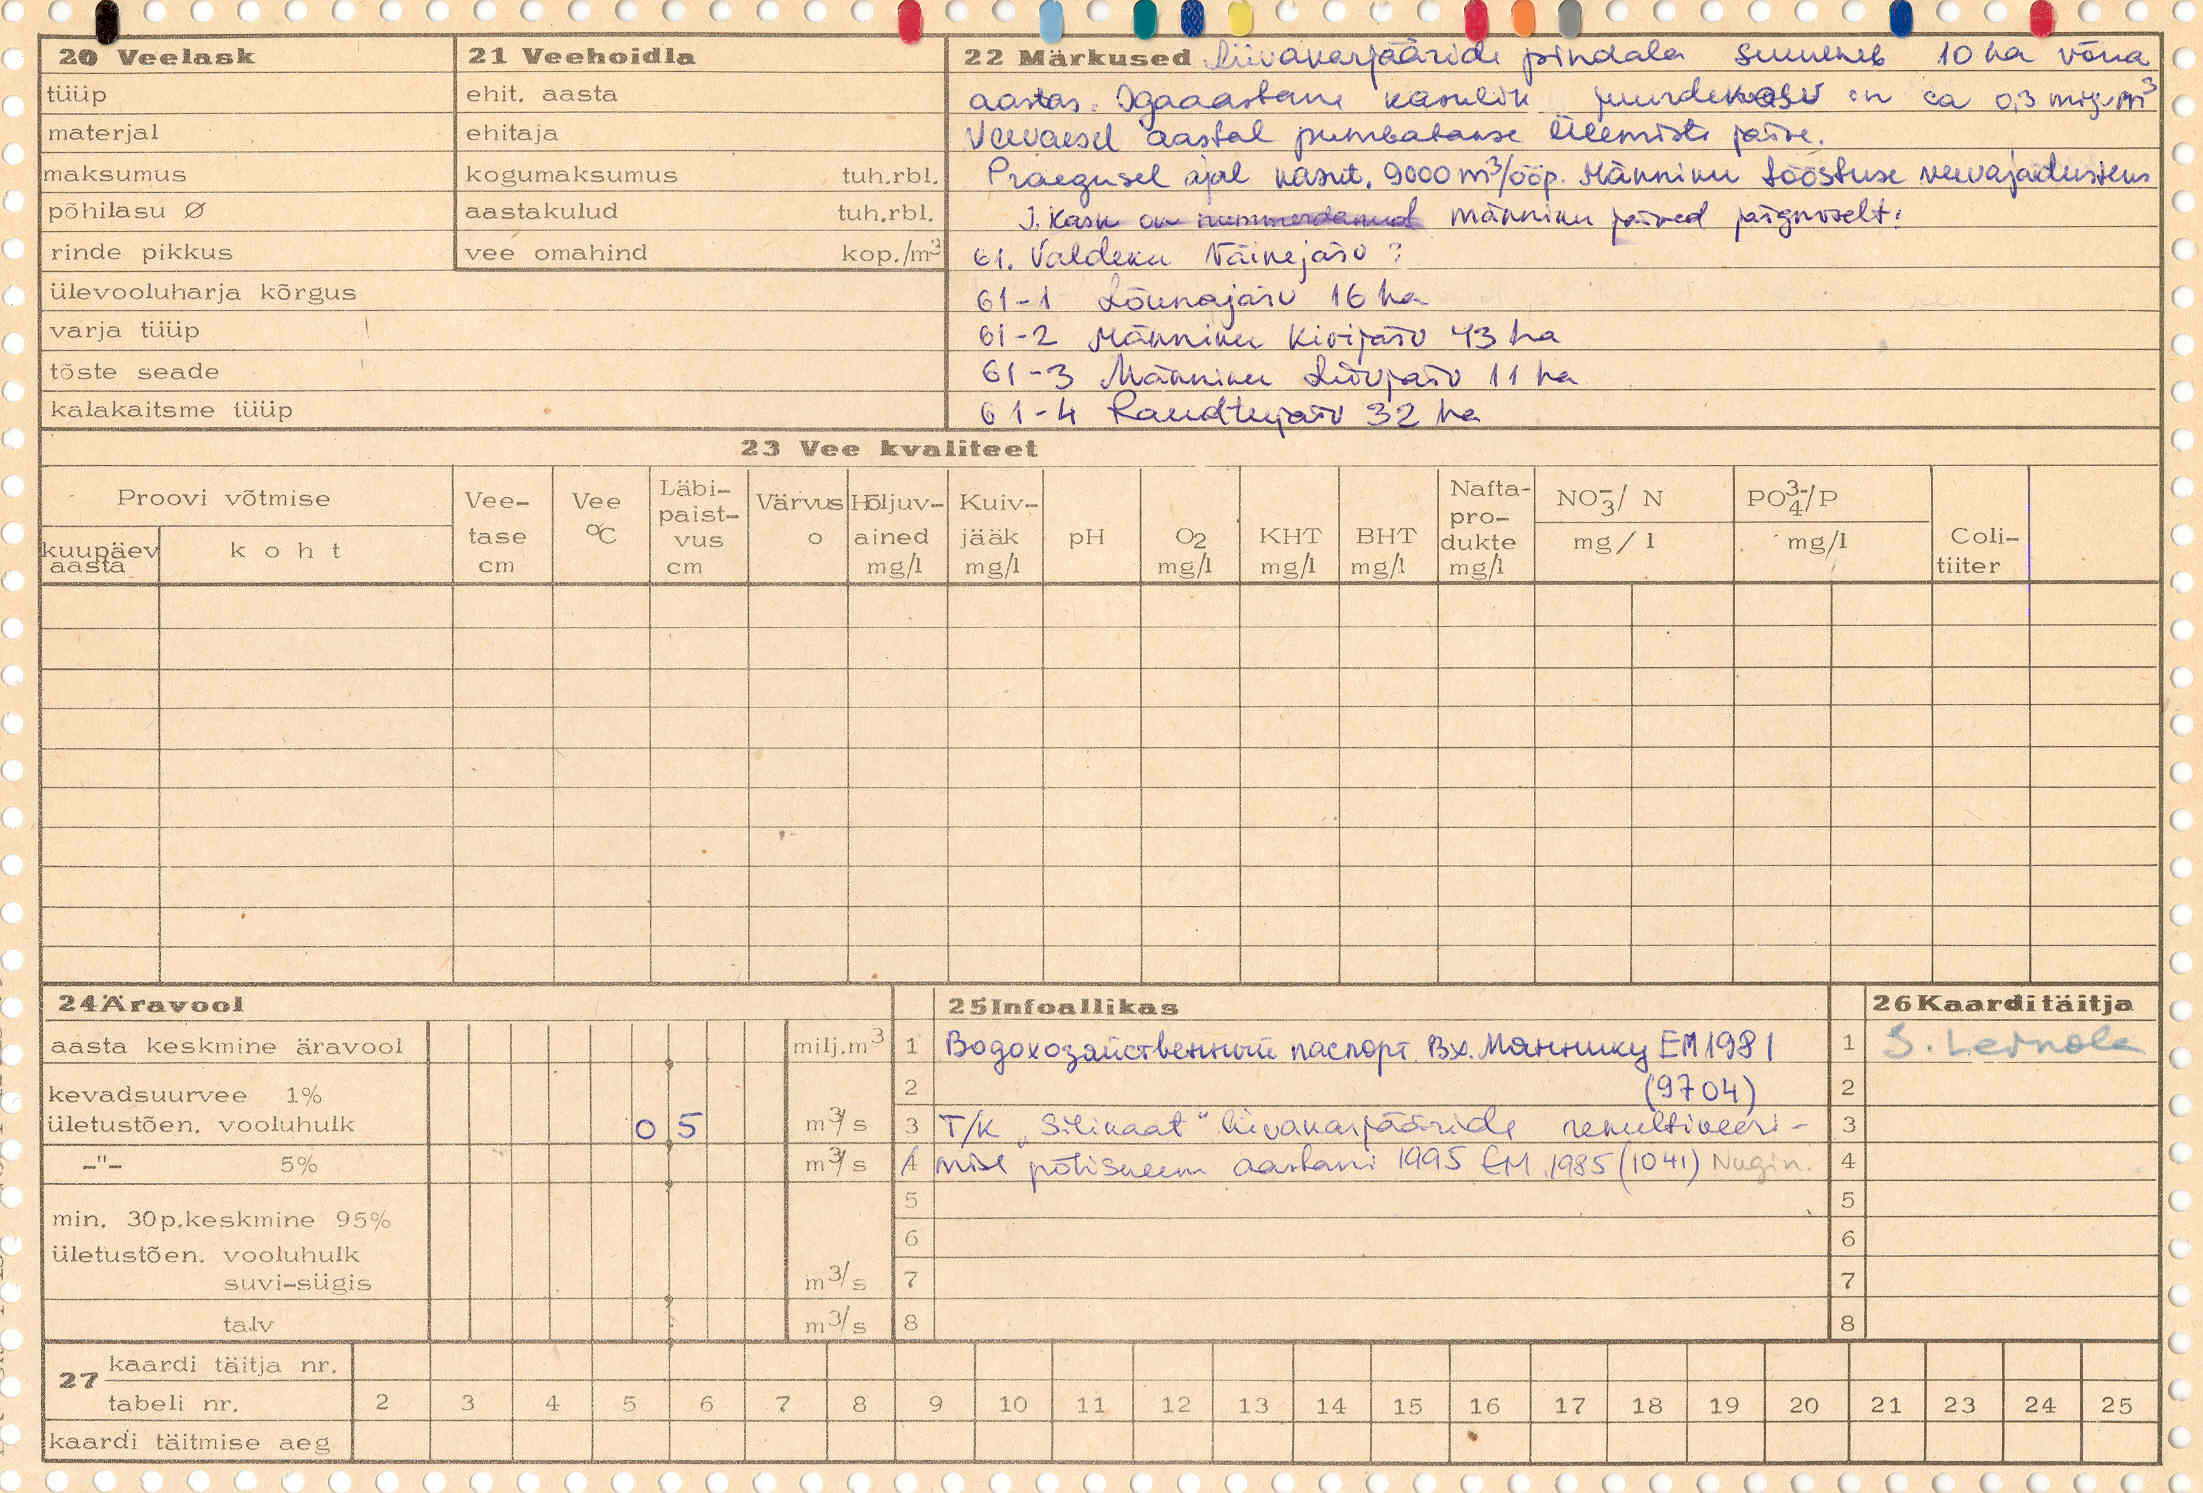 20 Veelask
tüüp
materjal
maksumus
põhilasu Ø
rinde pikkus
ülevooluharja kõrgus
varja tüüp
tõste seade
kalakaitsme tüüp
21 Veehoidla
ehit. aasta
ehitaja
kogumaksumus tuh.rbl.
aastakulud tuh.rbl.
vee omahind kop./m³
22 Märkused Liivakarjääride pindala suureneb 10 ha võrra
aastas. Igaaastane kasulik juurdekasv on ca 0,3 milj. m³
Veevaesel aastal pumbatakse Ülemiste järve.
Praegusel ajal kasut. 9000 m³/ööp. Männiku tööstuse veevajadusteks
J. Kask on nummerdanud Männiku järved järgmiselt:
61. Valdeku Väikejärv ?
61-1 Lõunajärv 16 ha
61-2 Männiku Kivijärv 43 ha
61-3 Männiku Liivjärv 11 ha
61-4 Raudtujärv 32 ha
23 Vee kvaliteet
Proovi võtmise
kuupäev aasta
koht
Vee-tase cm
Vee °C
Läbi-paist-vus cm
Värvus o
Hõljuv-ained mg/l
Kuiv-jääk mg/l
pH
O2 mg/l
KHT mg/l
BHT mg/l
Nafta-pro-dukte mg/l
NO3⁻/ N mg/l
PO4³⁻/P mg/l
Coli-tiiter
24 Äravool
aasta keskmine äravool milj.m³
kevadsuurvee 1%
ületustõen. vooluhulk 0 5 m³/s
-"- 5% m³/s
min. 30p.keskmine 95%
ületustõen. vooluhulk
suvi-sügis m³/s
talv m³/s
25 Infoallikas
1 Водохозяйственный паспорт. Вх. Мяннику ЕМ 1981
2 (9704)
3 T/K "Silikaat" liivakarjääride rekultiveeri-
4 mise põhiskeem aastani 1995 EM 1985 (1041) Nugin.
5
6
7
8
26 Kaarditäitja
1 S. Leinola
2
3
4
5
6
7
8
27 kaardi täitja nr.
tabeli nr. 2 3 4 5 6 7 8 9 10 11 12 13 14 15 16 17 18 19 20 21 23 24 25
kaardi täitmise aeg